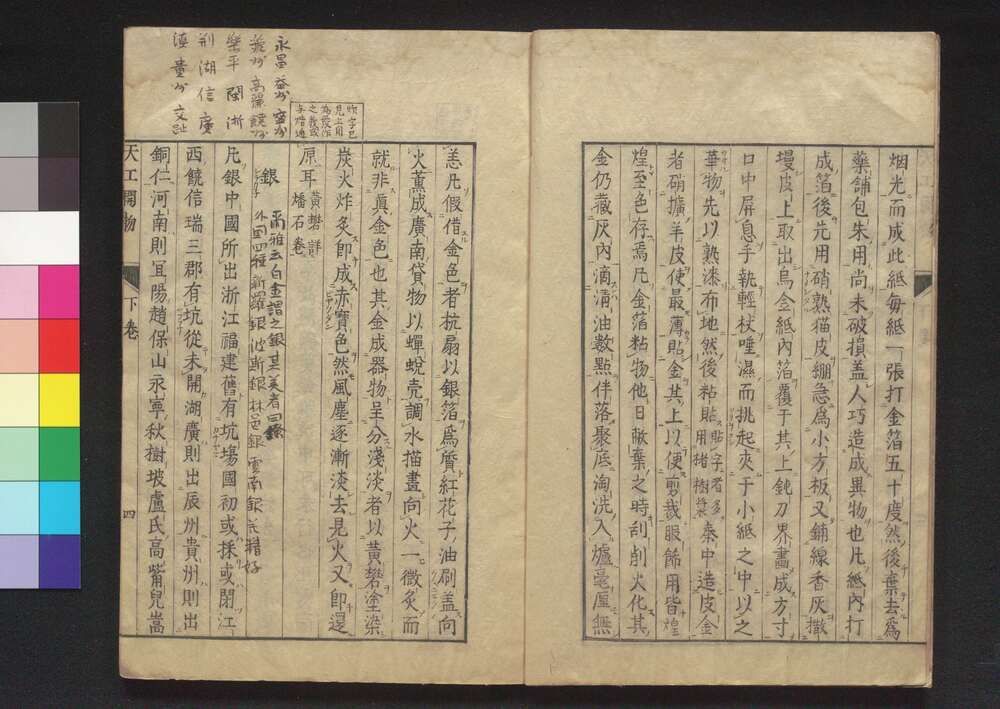 烟光而成此紙每紙一張打金箔五十度然後棄去爲
藥舗包朱用尚未破損盖人巧造成異物也凡紙內打
成箔後先用硝熟猫皮綳急爲小方板又鋪線香灰撒
墁皮上取出烏金紙內箔覆于其上鈍刀界畫成方寸
口中屏息手執輕杖唾濕而挑起夾于小紙之中以之
華物先以熟漆布地然後粘貼貼字者多用楮樹漿秦中造皮金
者硝擴羊皮使最薄貼金其上以便剪裁服飾用皆煌
煌至色存焉凡金箔粘物他日敝棄之時刮削火化其
金仍藏灰內滴清油數點伴落聚底淘洗入爐毫厘無
恙凡假借金色者杭扇以銀箔爲質紅花子油刷盖向
火薰成廣南貨物以蟬蛻壳調水描畫向火一微炙而
就非眞金色也其金成器物呈分淺淡者以黃礬塗染
炭火炸炙即成赤寶色然風塵逐漸淡去見火又即還
炸字已
見上用
為發作
之義或
与焙通
原耳黃礬詳燔石卷
永昌 益州 寧州
銀
爾雅云白金謂之銀其美者曰鐐
外国四種新羅銀波斯銀林邑銀雲南銀並精好
饒州 高麗
樂平 閩 浙
凡銀中國所出浙江福建舊有坑塲國初或採或閉江
荊 湖 信 廣
西饒信瑞三郡有坑從未開湖廣則出辰州貴州則出
滇 貴州 交趾
銅仁河南則宜陽趙保山永寧秋樹坡盧氏高觜兒嵩
天工開物 下卷 四